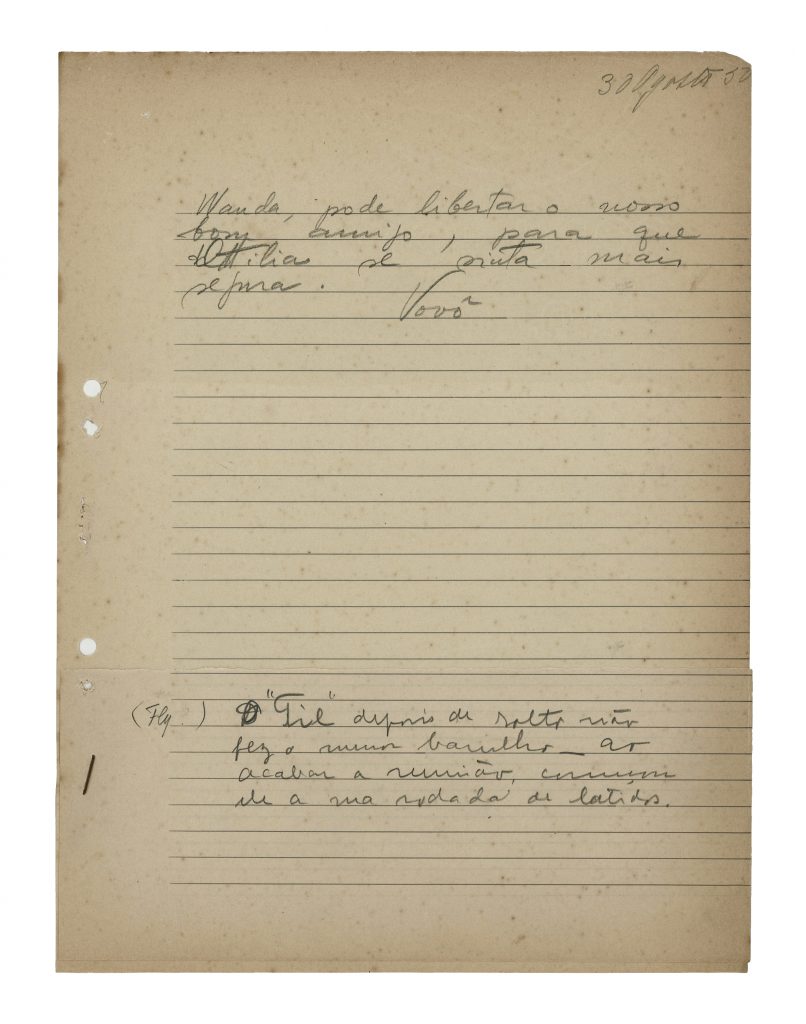 30 Agosto 50
Wanda, pode libertar o nosso
bom amigo, para que
Ottilia se sinta mais
segura.
Vovô
(Fly.) O "Gil" depois de solto não
fez o menor barulho – ao
acabar a reunião, começou
ele a sua rodada de latidos.